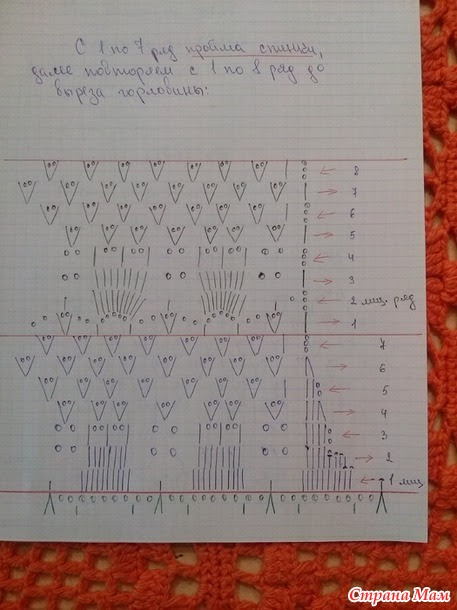 С 1 по 7 ряд пройма спинки,
далее повторяем с 1 по 8 ряд до
выреза горловины:
8
7
6
5
4
3
2 лиц. ряд
1
7
6
5
4
3
2
1 лиц
Страна Мам